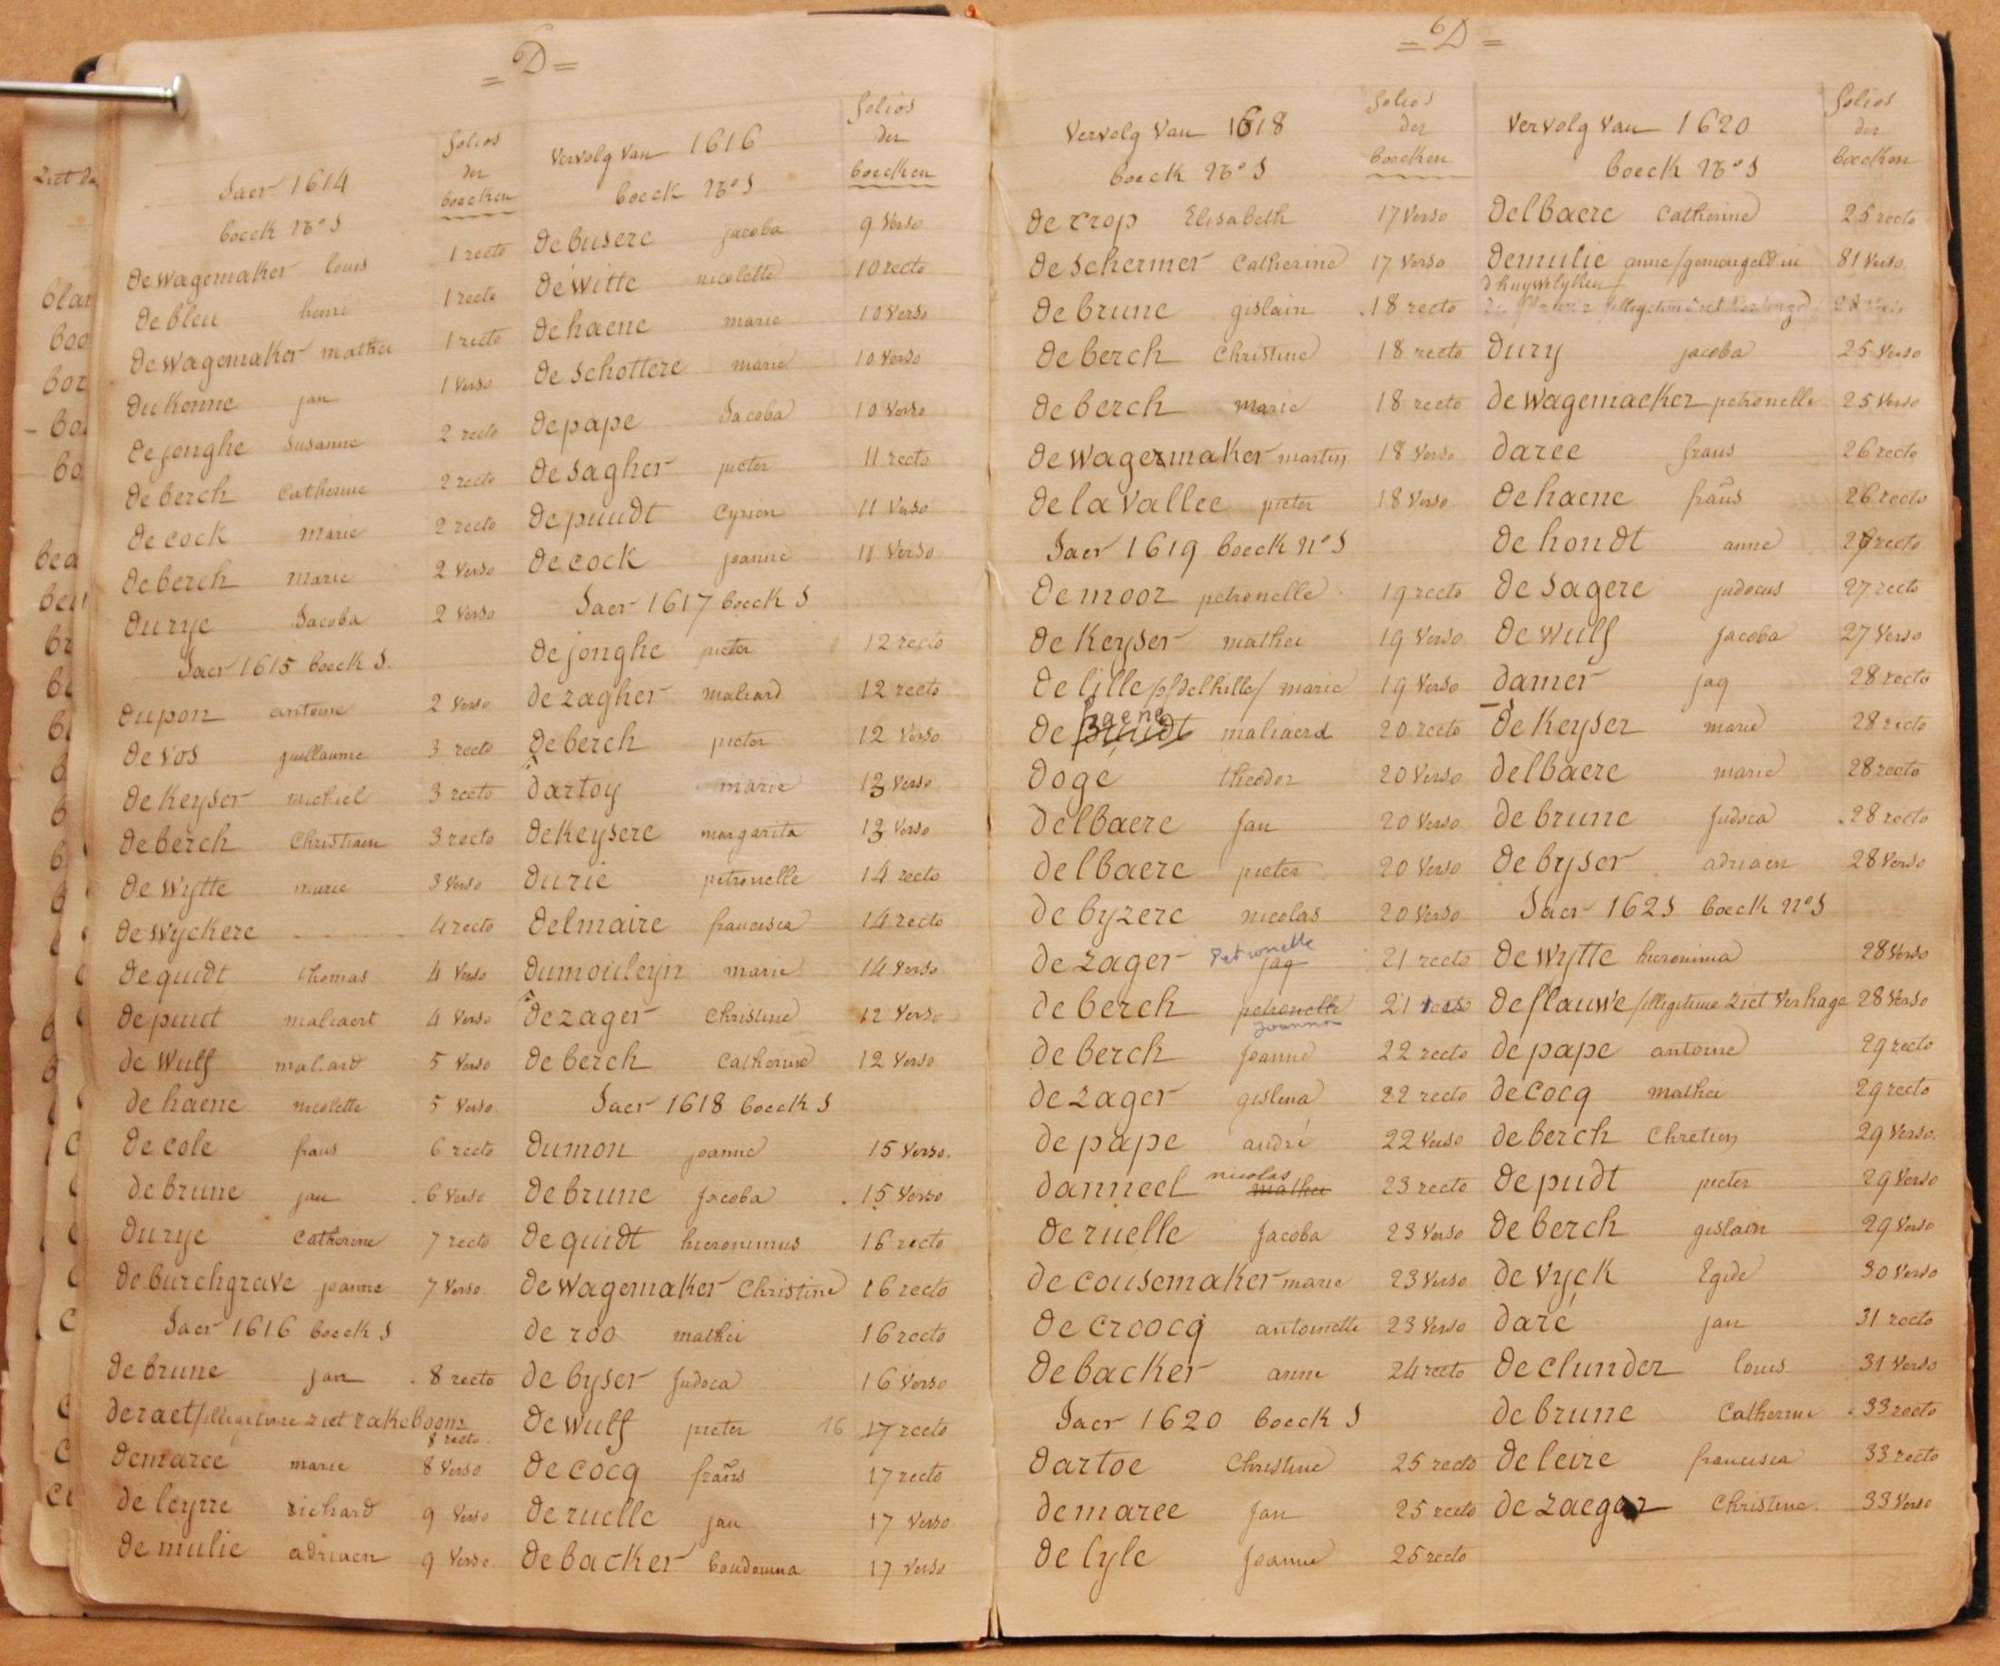 = D =
Jaer 1614
boeck No 1
folios
der
boecken
de wagemaker louis 1 recto
de bleu henri 1 recto
de wagemaker mathei 1 recto
du Konne jan 1 verso
de jonghe susanne 2 recto
de berch Catherine 2 recto
de cock marie 2 recto
de berch marie 2 verso
durye Jacoba 2 verso
Jaer 1615 boeck 1.
dupon antoine 2 verso
de vos guillaume 3 recto
de Keyser michiel 3 recto
de berch Christiaen 3 recto
de wytte marie 3 verso
de wyckere 4 recto
de quidt thomas 4 verso
de puut maliaert 4 verso
de wulf maliard 5 verso
de haene nicolette 5 verso
de cole frans 6 recto
de brune jan 6 verso
durye Catherine 7 recto
de burchgrave joanne 7 verso
Jaer 1616 boeck 1
de brune jan 8 recto
de raet/illegitime ziet rakeboom
8 recto
demaree marie 8 verso
de leyrre richard 9 verso
de mulie adriaen 9 verso
vervolg van 1616
boeck No 1
folios
der
boecken
de busere jacoba 9 verso
de witte nicolette 10 recto
de haene marie 10 verso
de schottere marie 10 verso
de pape Jacoba 10 verso
de sagher pieter 11 recto
de puudt Cyrien 11 verso
de cock joanne 11 verso
Jaer 1617 boeck 1
de jonghe pieter 12 recto
de zagher maliard 12 recto
de berch pieter 12 verso
dartoy marie 13 verso
de Keysere margarita 13 verso
durie petronelle 14 recto
delmaire francisca 14 recto
dumouleyn marie 14 verso
de zager christine 12 verso
de berch Catherine 12 verso
Jaer 1618 boeck 1
dumon joanne 15 verso.
de brune Jacoba 15 verso
de quidt hieronimus 16 recto
de wagemaker Christine 16 recto
de roo mathei 16 recto
de byser Judoca 16 verso
de wulf pieter 16 17 recto
de cocq frans 17 recto
de ruelle jan 17 verso
de backer boudouina 17 verso
= D =
vervolg van 1618
boeck No 1
folios
der
boecken
de crop Elisabeth 17 verso
de schermer Catherine 17 verso
de brune gislain 18 recto
de berch Christine 18 recto
de berch marie 18 recto
de wagermaker martin 18 verso
de la vallee pieter 18 verso
Jaer 1619 boeck no 1
de moor petronelle 19 recto
de Keyser mathei 19 verso
de lille /delhille/ marie 19 verso
haene
de maliaerd 20 recto
dogé theodor 20 verso
delbaere Jan 20 verso
delbaere pieter 20 verso
de byzere nicolas 20 verso
Petronelle
de zager jaq 21 recto
de berch petronelle 21
joanna
de berch Joanne 22 recto
de zager gislena 22 recto
de pape andré 22 verso
nicolas
danneel mathei 23 recto
de ruelle Jacoba 23 verso
de cousemaker marie 23 verso
de croocq antoinette 23 verso
de backer anne 24 recto
Jaer 1620 boeck 1
dartoe Christine 25 recto
demaree Jan 25 recto
de lyle Joanne 25 recto
vervolg van 1620
boeck No 1
folios
der
boecken
delbaere Catherine 25 recto
demulie anne 81 verso
dury jacoba 25 verso
de wagemaeker petronelle 25 verso
daree frans 26 recto
de haene frans 26 recto
de hondt anne recto
de sagere judocus 27 recto
de wulf Jacoba 27 verso
damer jaq 28 recto
de Keyser marie 28 recto
delbaere marie 28 recto
de brune Judoca 28 recto
de byser adriaen 28 verso
Jaer 1621 boeck no 1
de wytte hieronima 28 verso
deflauwe /illigitime ziet verhage 28 verso
de pape antoine 29 recto
de cocq mathei 29 recto
de berch Chretien 29 verso.
de pudt pieter 29 verso
de berch gislain 29 verso
de vyck Egide 30 verso
daré jan 31 recto
de clunder louis 31 verso
de brune Catherine 33 recto
de leire francisca 33 recto
de zaeger Christine. 33 verso